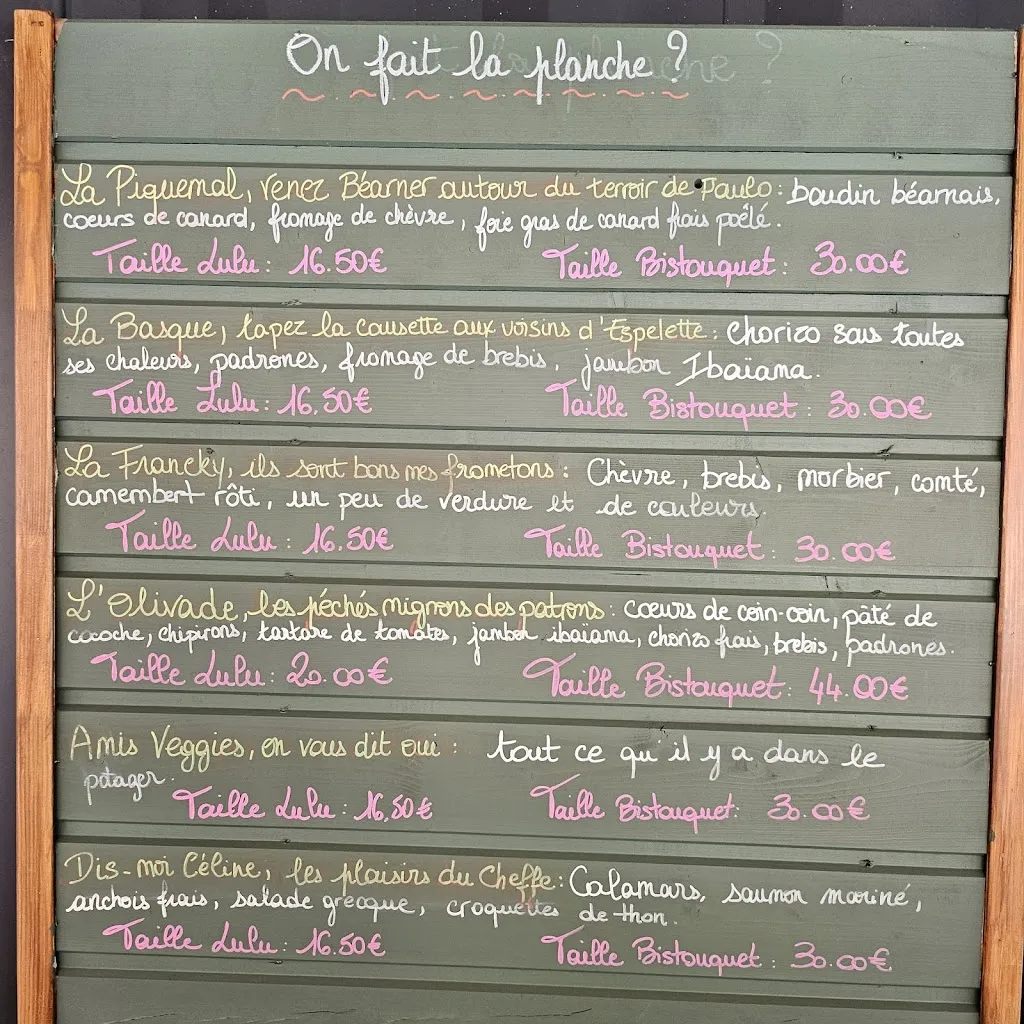 On fait la planche ?
La Piquemal, venez Béarner autour du terroir de Paulo : boudin béarnais,
coeurs de canard, fromage de chèvre, foie gras de canard frais poêlé.
Taille Lulu : 16.50€ Taille Bistouquet : 30.00€
La Basque, tapez la causette aux voisins d'Espelette : Chorizo sous toutes
ses chaleurs, padrones, fromage de brebis, jambon Ibaïama.
Taille Lulu : 16.50€ Taille Bistouquet : 30.00€
La Francky, ils sont bons mes frometons : Chèvre, brebis, morbier, comté,
camembert rôti, un peu de verdure et de couleurs.
Taille Lulu : 16.50€ Taille Bistouquet : 30.00€
L'Olivade, les péchés mignons des patrons : coeurs de coin-coin, pâté de
cocoche, chipirons, tartare de tomates, jambon ibaïama, chorizo frais, brebis, padrones.
Taille Lulu : 20.00€ Taille Bistouquet : 44.00€
Amis Veggies, on vous dit oui : tout ce qu'il y a dans le
potager.
Taille Lulu : 16,50€ Taille Bistouquet : 30.00€
Dis-moi Céline, les plaisirs du Cheffe : Calamars, saumon mariné,
anchois frais, salade grecque, croquettes de thon.
Taille Lulu : 16.50€ Taille Bistouquet : 30.00€